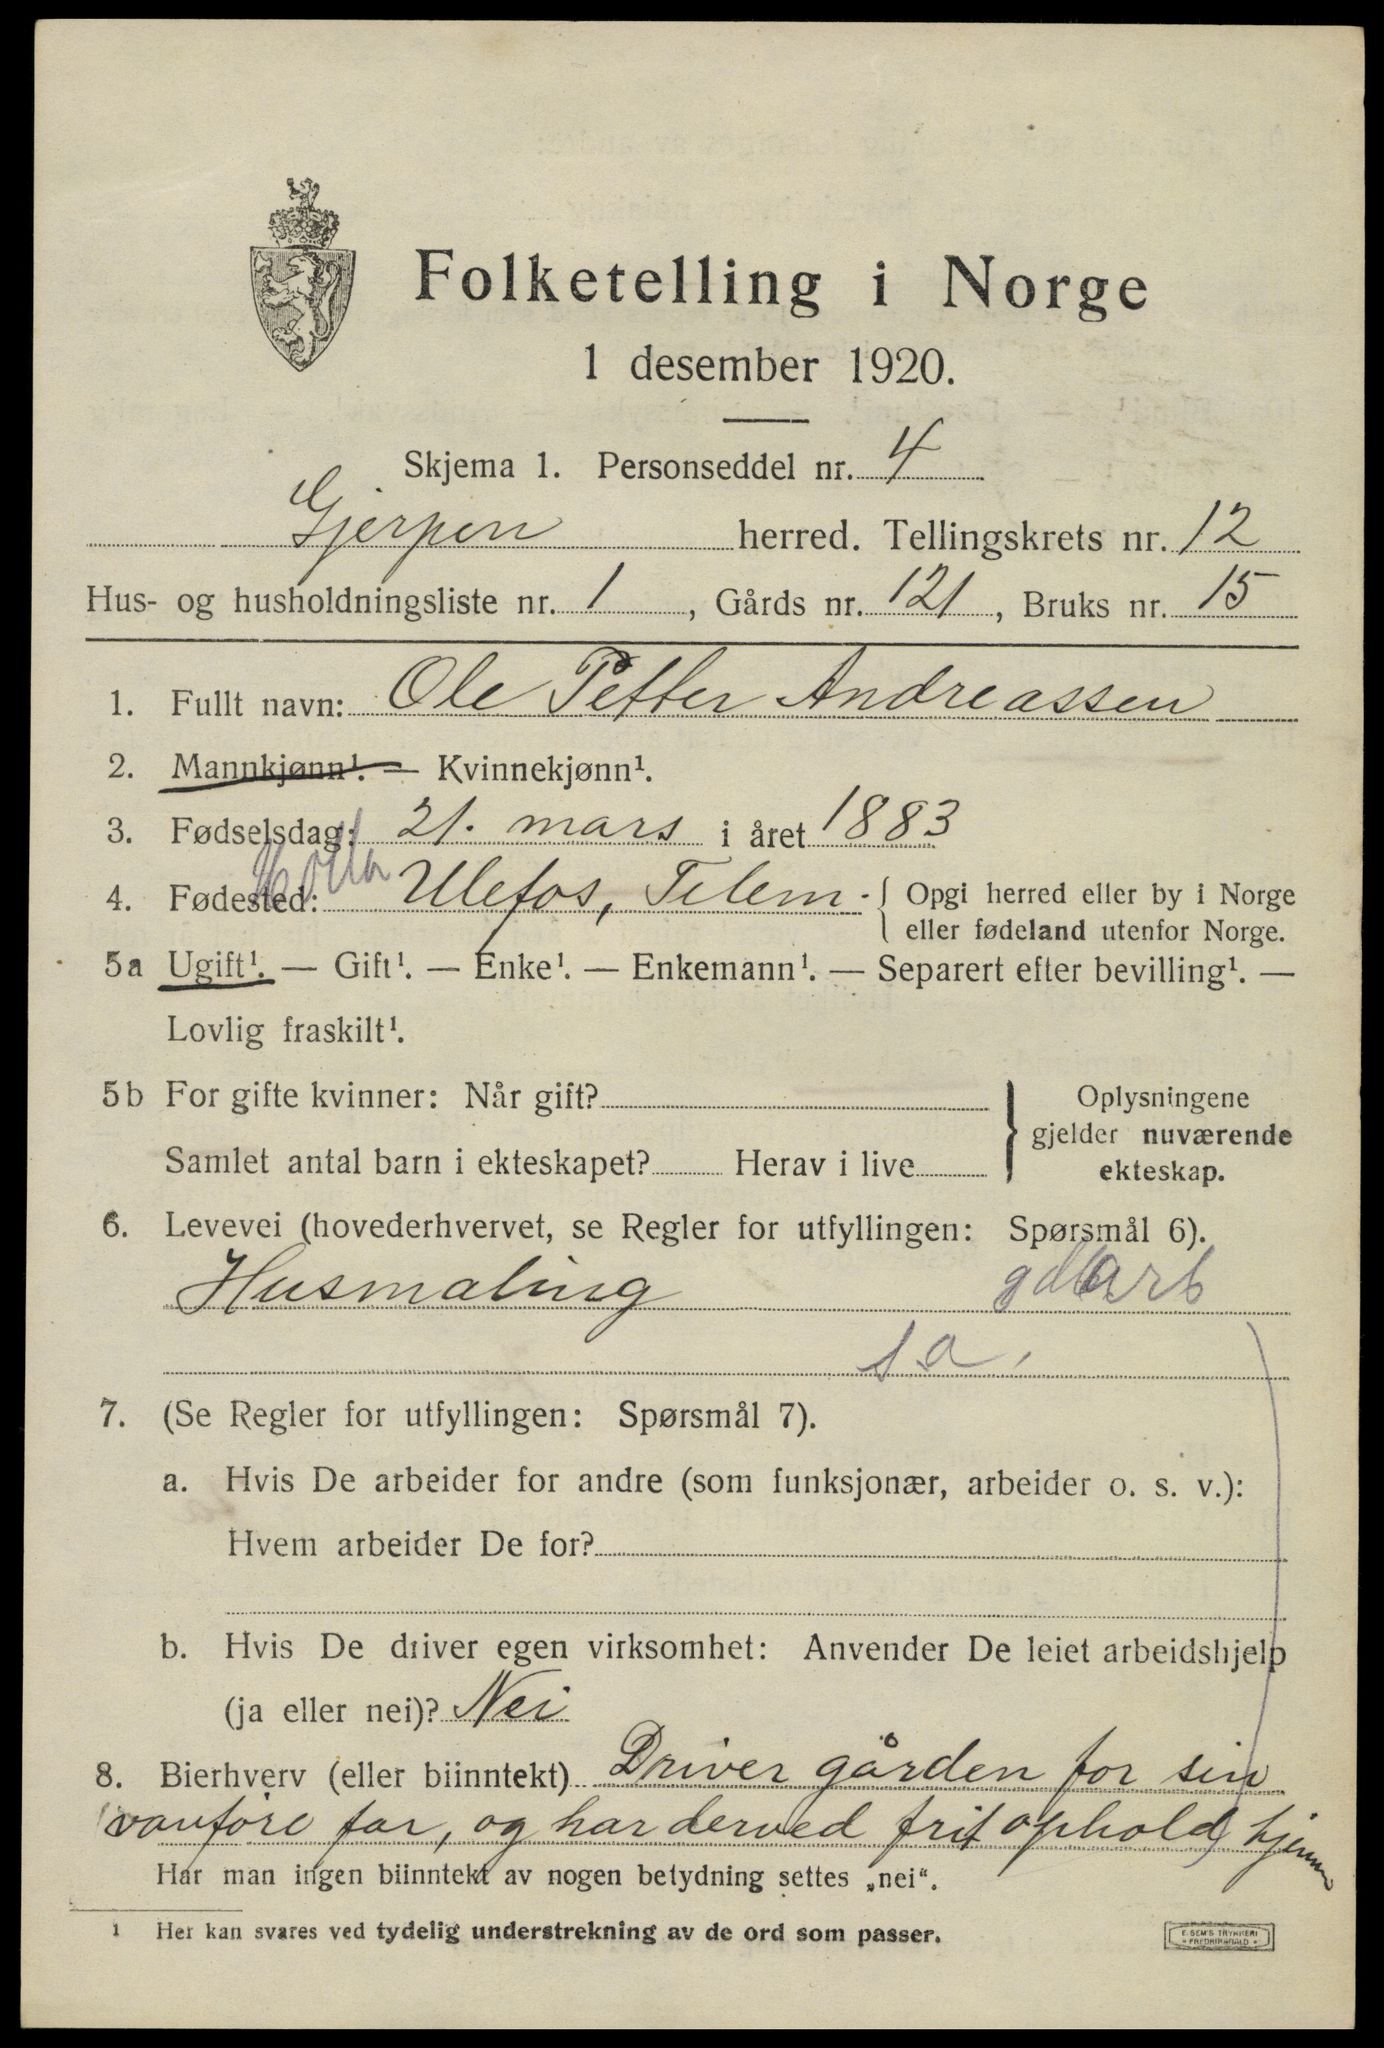 Folketelling i Norge
1 desember 1920.
Skjema 1. Personseddel nr. 4
Gjerpen herred. Tellingskrets nr. 12
Hus- og husholdningsliste nr. 1, Gårds nr. 121, Bruks nr. 15
1. Fullt navn: Ole Petter Andreassen
2. Mannkjønn¹. — Kvinnekjønn¹.
3. Fødselsdag: 21. mars i året 1883
Holla
4. Fødested: Ulefos, Telem. { Opgi herred eller by i Norge
eller fødeland utenfor Norge.
5a Ugift¹. — Gift¹. — Enke¹. — Enkemann¹. — Separert efter bevilling¹. —
Lovlig fraskilt¹.
5b For gifte kvinner: Når gift? } Oplysningene
gjelder nuværende
Samlet antal barn i ekteskapet? Herav i live
ekteskap.
6. Levevei (hovederhvervet, se Regler for utfyllingen: Spørsmål 6).
Husmaling
s a.
7. (Se Regler for utfyllingen: Spørsmål 7).
a. Hvis De arbeider for andre (som funksjonær, arbeider o. s. v.):
Hvem arbeider De for?
b. Hvis De driver egen virksomhet: Anvender De leiet arbeidshjelp
(ja eller nei)? Nei
8. Bierhverv (eller biinntekt) Driver gården for sin
vanføre far, og har derved frit ophold hjemme
Har man ingen biinntekt av nogen betydning settes „nei“.
¹ Her kan svares ved tydelig understrekning av de ord som passer.
E. SEM'S TRYKKERI
FREDRIKSHALD